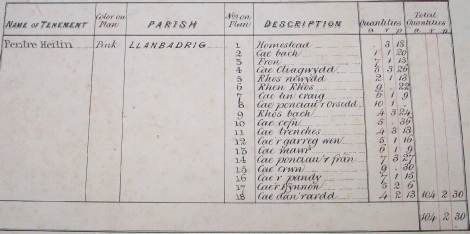 NAME OF TENEMENT Color on Plan PARISH Nos on Plan DESCRIPTION Quantities a r p Total Quantities a r p
Pentre Heilin Pink LLANBADRIG 1 Homestead 3 15
2 Cae bach 1 1 20
3 Fron 7 1 15
4 Cae Cliagwydd 3 3 26
5 Rhos newydd 2 1 13
6 Rhen Rhos 9 . 22
7 Cae lin craig 6 1 9
8 Cae poncian'r Orsedd 10 1 .
9 Rhos bach 4 3 24
10 Cae cefn 5 . 36
11 Cae trenches 4 3 13
12 Cae'r garreg wen 5 1 16
13 Cae mawr 6 1 9
14 Cae poncian'r frân 7 3 27
15 Cae crwn 9 . 30
16 Cae'r pandy 7 1 15
17 Cae'r ffynnon 5 2 6
18 Cae dan'rardd 4 2 13 104 2 30
104 2 30